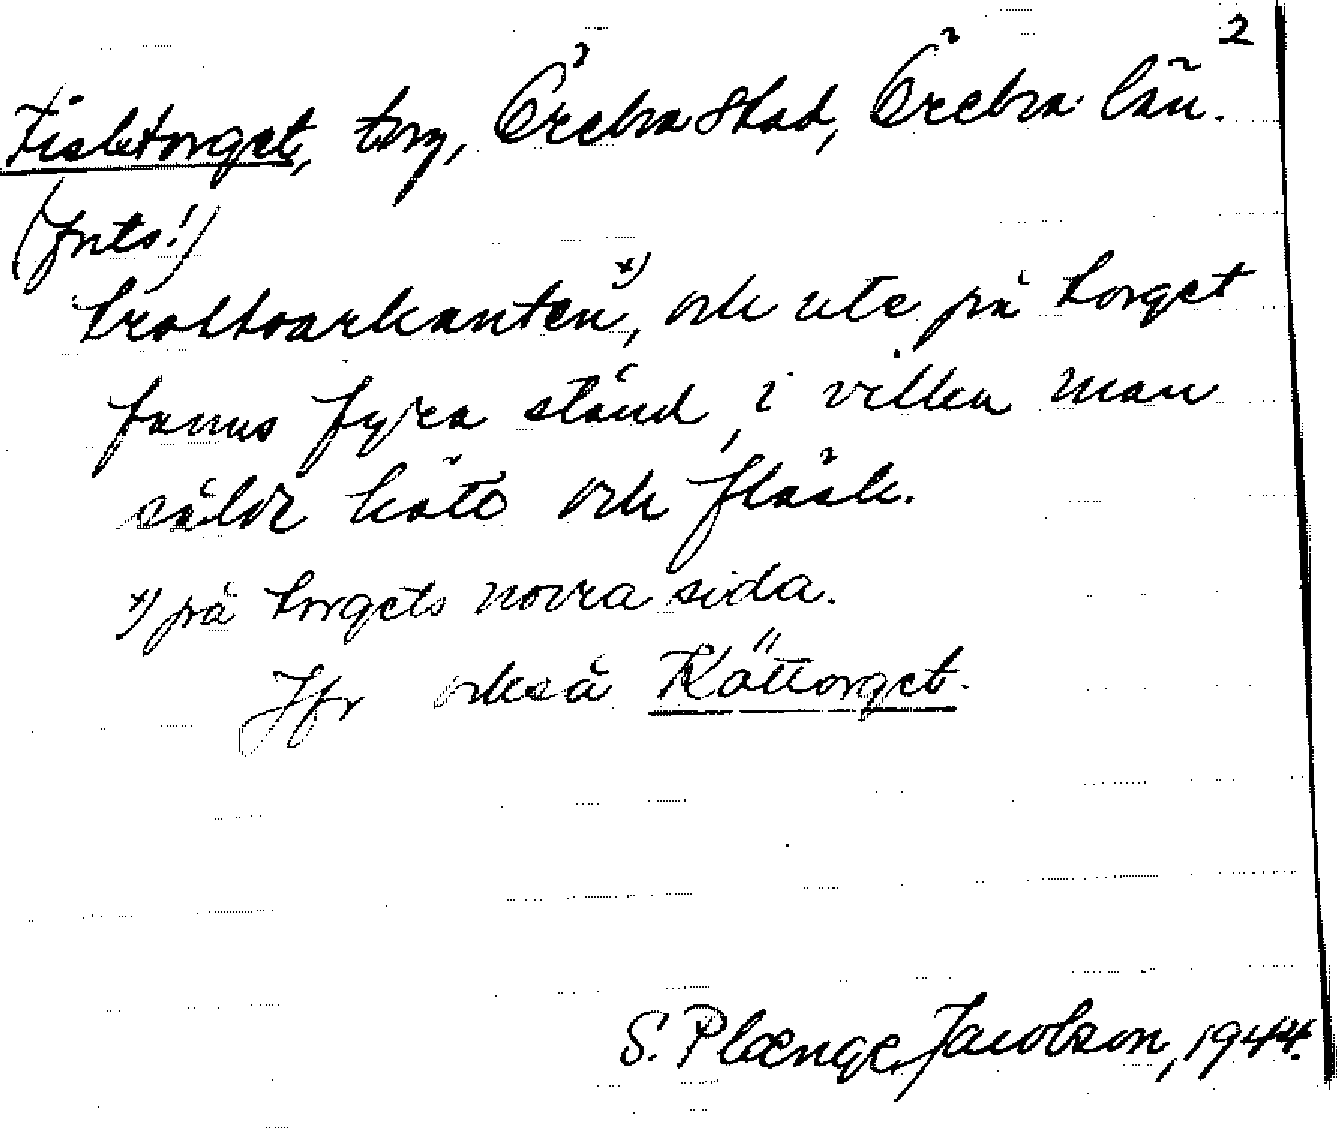 2
Fisktorget, torg, Örebro stad, Örebro län.
(forts!)
trottoarkanten x), och ute på torget
fanns fyra stånd, i vilka man
sålde kött och fläsk.
x) på torgets norra sida.
Jfr också Köttorget.
S. Plænge Jacobson, 1944.